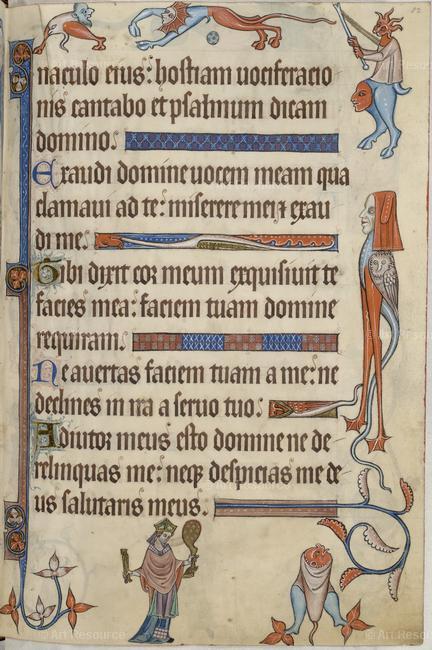 naculo eius: hostiam uociferacio
nis cantabo et psalmum dicam
domino.
Exaudi domine uocem meam qua
clamaui ad te: miserere mei ⁊ exau
di me.
Tibi dixit cor meum exquisiuit te
facies mea: faciem tuam domine
requiram.
Ne auertas faciem tuam a me: ne
declines in ira a seruo tuo.
Adiutor meus esto domine ne de
relinquas me: neq; despicias me de
us salutaris meus.
© Art Resource
© Art Resource